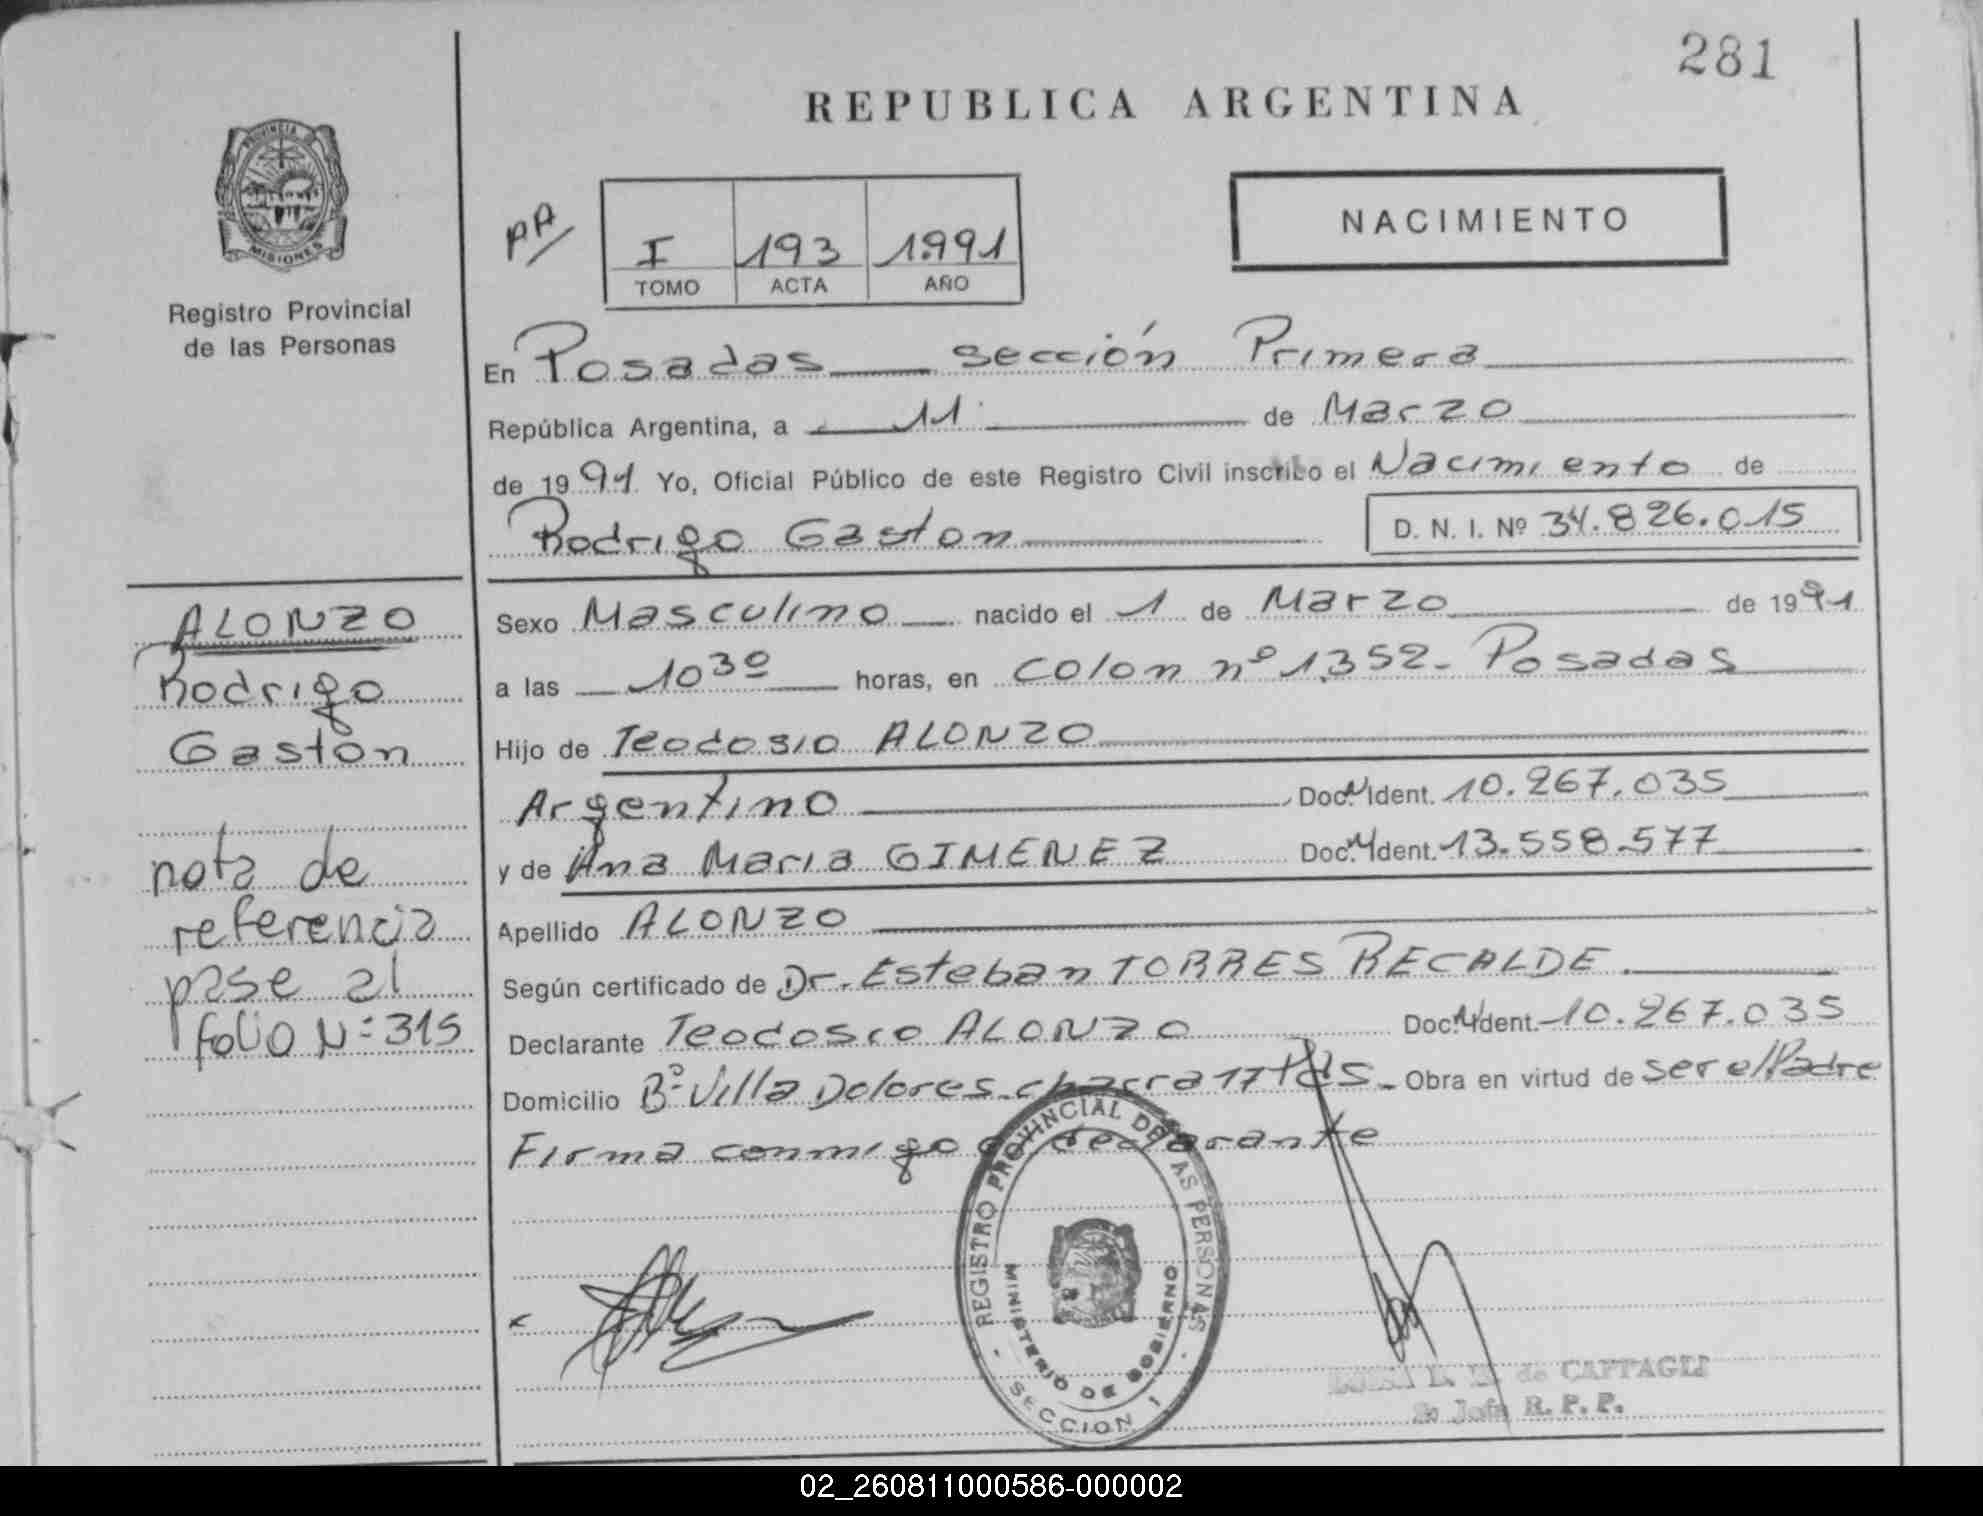 281
REPUBLICA ARGENTINA
PROVINCIA DE
MISIONES
Registro Provincial
de las Personas
PA/
I 193 1991
TOMO ACTA AÑO
NACIMIENTO
En Posadas sección Primera
República Argentina, a 11 de Marzo
de 1991 Yo, Oficial Público de este Registro Civil inscribo el Nacimiento de
Rodrigo Gaston D. N. I. Nº 34.826.015
ALONZO
Rodrigo
Gastón
nota de
referencia
pase al
folio Nº 315
Sexo Masculino nacido el 1 de Marzo de 1991
a las 10 30 horas, en Colon nº 1352 - Posadas
Hijo de Teodosio ALONZO
Argentino Doc. N Ident. 10.267.035
y de Ana Maria GIMENEZ Doc. N Ident. 13.558.577
Apellido ALONZO
Según certificado de Dr. Esteban TORRES RECALDE.
Declarante Teodosio ALONZO Doc. N Ident. 10.267.035
Domicilio Bº Villa Dolores chacra 17 Pdas - Obra en virtud de ser el Padre
Firma conmigo el declarante
REGISTRO PROVINCIAL DE LAS PERSONAS
MINISTERIO DE GOBIERNO
SECCION 1
de
Jefe R. P. P.
02_260811000586-000002